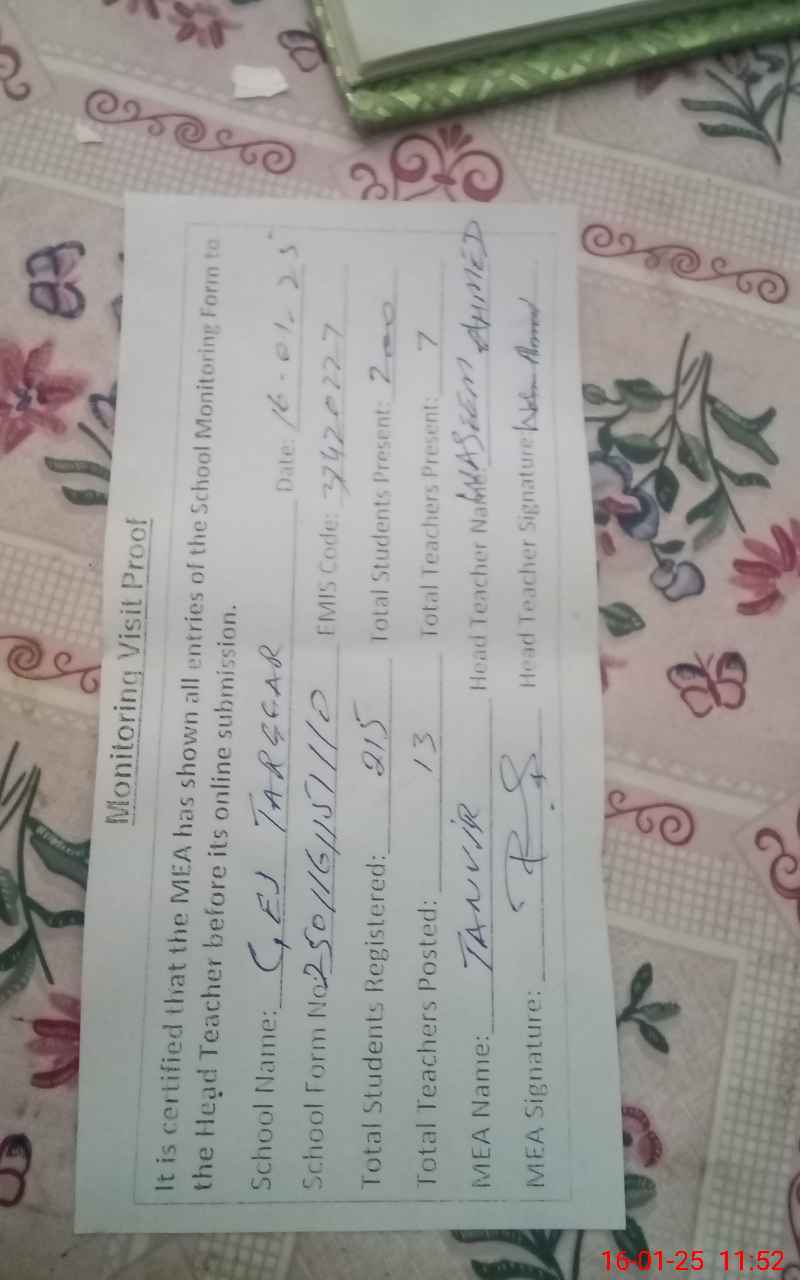 Monitoring Visit Proof
It is certified that the MEA has shown all entries of the School Monitoring Form to
the Head Teacher before its online submission.
School Name: GES TARGGAR Date: 16-01-25
School Form No: 250116115111110 EMIS Code: 37420227
Total Students Registered: 215 Total Students Present: 200
Total Teachers Posted: 13 Total Teachers Present: 7
MEA Name: TANVIR Head Teacher Name: WASEEM AHMED
MEA Signature: Head Teacher Signature:
16-01-25 11:52